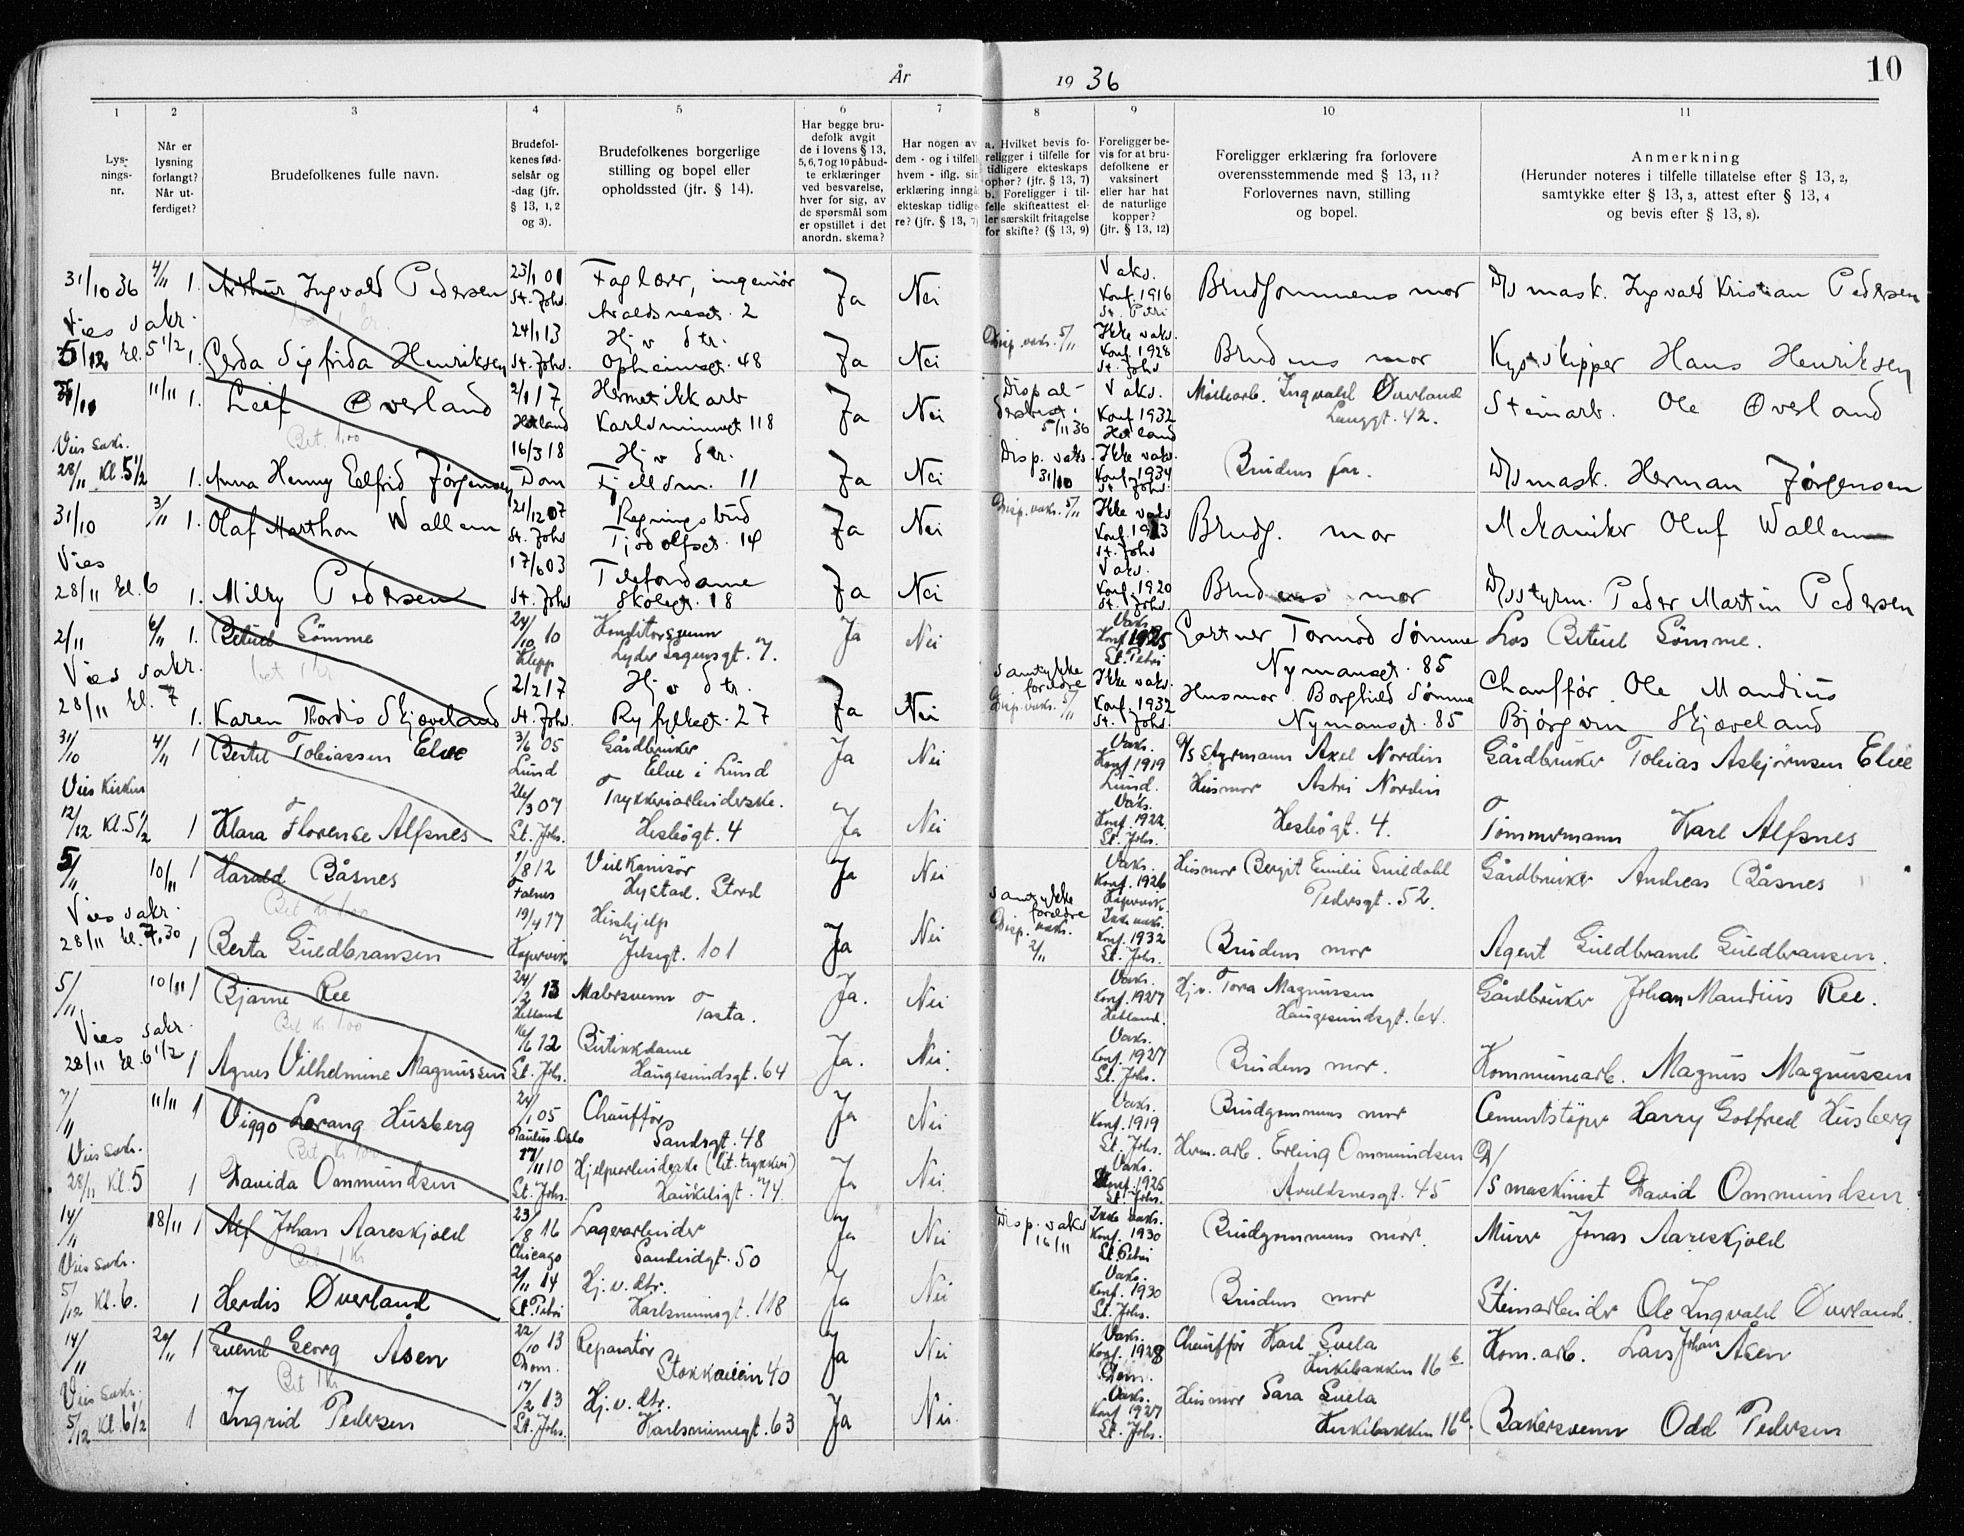 År 1936
10
1 2 3 4 5 6 7 8 9 10 11
Lys-
nings-
nr.
Når er
lysning
forlangt?
Når ut-
ferdiget?
Brudefolkenes fulle navn.
Brudefol-
kenes fød-
selsår og
-dag (jfr.
§ 13, 1, 2
og 3).
Brudefolkenes borgerlige
stilling og bopel eller
opholdssted (jfr. § 14).
Har begge bru-
defolk avgit
de i lovens § 13,
5, 6, 7 og 10 påbud-
te erklæringer
ved besvarelse,
hver for sig, av
de spørsmål som
er opstillet i det
anordn. skema?
Har nogen av
dem - og i tilfelle
hvem - iflg. sin
erklæring inngå
ekteskap tidlige-
re? (jfr. § 13, 7)
a. Hvilket bevis fo-
religger i tilfelle for
tidligere ekteskaps
ophør? (jfr. § 13, 7)
b. Foreligger i til-
felle skifteattest el-
ler særskilt fritagelse
for skifte? (§ 13, 9)
Foreligger be-
vis for at bru-
defolkene er
vaksinert
eller har hat
de naturlige
kopper?
(jfr. § 13, 12)
Foreligger erklæring fra forlovere
overensstemmende med § 13, 11?
Forlovernes navn, stilling
og bopel.
Anmerkning
(Herunder noteres i tilfelle tillatelse efter § 13, 2,
samtykke efter § 13, 3, attest efter § 13, 4
og bevis efter § 13, 8).
31/10 36 4/11 1. Arthur Ingvald Pedersen 23/1 01 St. Johs. Faglærer, ingeniør Avaldsnesgt. 2 Ja Nei Vaks. Konf. 1916 St. Petri Brudgommens mor D/s mask. Ingvald Kristian Pedersen
Vies sakr. 5/12 kl. 5 1/2 1. Gerda Sigfrida Henriksen 24/1 13 St. Johs. Hj v dtr. Opheimsgt. 48 Ja Nei Disp. vaks. 5/11 Ikke vaks. Konf. 1928 St. Johs Brudens mor Kystskipper Hans Henriksen
11/11 1. Leif Øverland 2/1 17 Hetland Hermetikkarb Karlsminnegt 118 Ja Nei Disp al- 5/11 36 Vaks. Konf. 1932 Hetland Ingvald Øverland Langgt. 42. Steinarb. Ole Øverland
Bet. 1.00
Vies sakr. 28/11 Kl. 5 1/2 1. Anna Henny Elfrid Jørgensen 16/3 18 Dom Hj v dtr. Fjellsm. 11 Ja Nei Disp. vaks. 31/10 Ikke vaks. Konf. 1934 St. Johs. Brudens far. D/s mask. Herman Jørgensen
31/10 3/11 1. Olaf Marthon Wallem 21/12 07 St. Johs Regningsbud Tjodolfsgt. 14 Ja Nei Disp. vaks. 5/11 Ikke vaks Konf. 1923 St. Johs Brudg. mor Mekaniker Oluf Wallem
Vies 28/11 kl. 6 1. Milly Pedersen 17/6 03 St. Johs Telefondame Skolegt. 18 Ja Nei Vaks. Konf. 1920 St. Johs Brudens mor D/s styrm. Peder Martin Pedersen
2/11 6/11 1. Betuel Sømme 24/10 10 Klepp Konditorsvenn Lyder Sagensgt. 7. Ja Nei Vaks. Konf. 1925 St. Petri Gartner Tormod Sømme Nymansgt. 85 Los Betuel Sømme.
bet 1 kr
Vies sakr. 28/11 kl. 7 1. Karen Thordis Skjæveland 2/2 17 St. Johs. Hj v dtr. Ryfylkegt. 27 Ja Nei samtykke foreldre Disp. vaks. 5/11 Ikke vaks. Konf. 1932 St. Johs. Husmor Borghild Sømme Nymansgt. 85 Chauffør Ole Mandius Bjørgvin Skjæveland
31/10 4/11 1 Bertel Tobiassen Elve 3/6 05 Lund Gårdbruker Elve i Lund Ja Nei Vaks. Konf 1919 Lund. D/s styrmann Axel Nordin Husmor Astri Nordin Gårdbruker Tobias Asbjørnsen Elve
Vies Kirken 12/12 Kl. 5 1/2 1 Klara Florense Alfsnes 26/3 07 St. Johs. Trykkeriarbeiderske. Hesbøgt. 4 Ja Nei Vaks. Konf. 1922. St. Johs. Hesbøgt. 4. Tømmermann Karl Alfsnes
5/11 10/11 1 Harald Båsnes 1/8 12 Falnes Vulkanisør Hystad. Stord Ja Nei Vaks. Konf. 1926 Kopervik. Husmor Bergit Emilie Pedersgt. 52. Gårdbruker Andreas Båsnes
Bet Kr 1.00
Vies sakr. 28/11 kl. 7.30 1 Berta Guldbransen 19/4 17 Kopervik Hushjelp Jelsgt. 101 Ja Nei samtykke foreldre Disp. vaks. 2/11 Ikke vaks. Konf. 1932 St. Johs. Brudens mor Agent Guldbrand Guldbransen.
5/11 10/11 1 Bjarne Ree 24/2 13 Hetland Malersvenn Tasta. Ja. Nei Vaks. Konf. 1927 Hetland. Hj.v. Tora Magnussen Haugesundsgt. 64. Gårdbruker Johan Mandius Ree.
Bet Kr 1.00
Vies sakr. 28/11 kl. 6 1/2 1 Agnes Vilhelmine Magnussen 16/6 12 St. Johs. Butikkdame Haugesundsgt. 64 Ja. Nei Vaks. Konf. 1927 St. Johs. Brudens mor. Kommunearb. Magnus Magnussen
7/11 11/11 1 Viggo Lorang Husberg 24/1 05 Paulus Oslo Chauffør Sandsgt. 48 Ja Nei Vaks. Konf. 1919 St. Johs. Brudgommens mor Cementstøper Harry Gotfred Husberg
Bet Kr 1.00
Vies sakr. 28/11 Kl. 5 1 Davida Ommundsen 17/11 10 St. Johs. Hjelpearbeiderske (lit. trykkeri) Haukeligt. 74. Ja Nei. Vaks. Konf. 1925 St. Johs Herm. arb. Erling Ommundsen Avaldsnesgt. 45 D/s maskinist David Ommundsen
14/11 18/11 1 Alf Johan Aareskjold 23/8 16 Chicago Lagerarbeider Sandeidgt. 50 Ja Nei Disp. vaks 16/11 Ikke vaks. Konf. 1930 St. Petri Brudgommens mor. Murer Jonas Aareskjold
Bet 1 Kr
Vies sakr. 5/12 Kl. 6. 1 Herdis Øverland 2/11 14 St. Petri Hj. v. dtr. Karlsminnegt. 118 Ja Nei Vaks. Konf. 1930 St. Johs. Brudens mor Steinarbeider Ole Ingvald Øverland.
14/11 20/11 1 Svend Georg Åsen 22/10 13 Dom. Reparatør Stokkaveien 40 Ja Nei Vaks. Konf. 1928 Dom. Chauffør Karl Kirkebakken 16 b. Kom. arb. Lars Johan Åsen
Bet 1 Kr
Vies sakr. 5/12 Kl. 6 1/2 1 Ingrid Pedersen 17/2 13 St. Johs. Hj. v. dtr. Karlsminnegt. 63 Ja Nei. Vaks. Konf 1927 St. Johs. Husmor Sara Kirkebakken 16 b. Bakersvenn Odd Pedersen